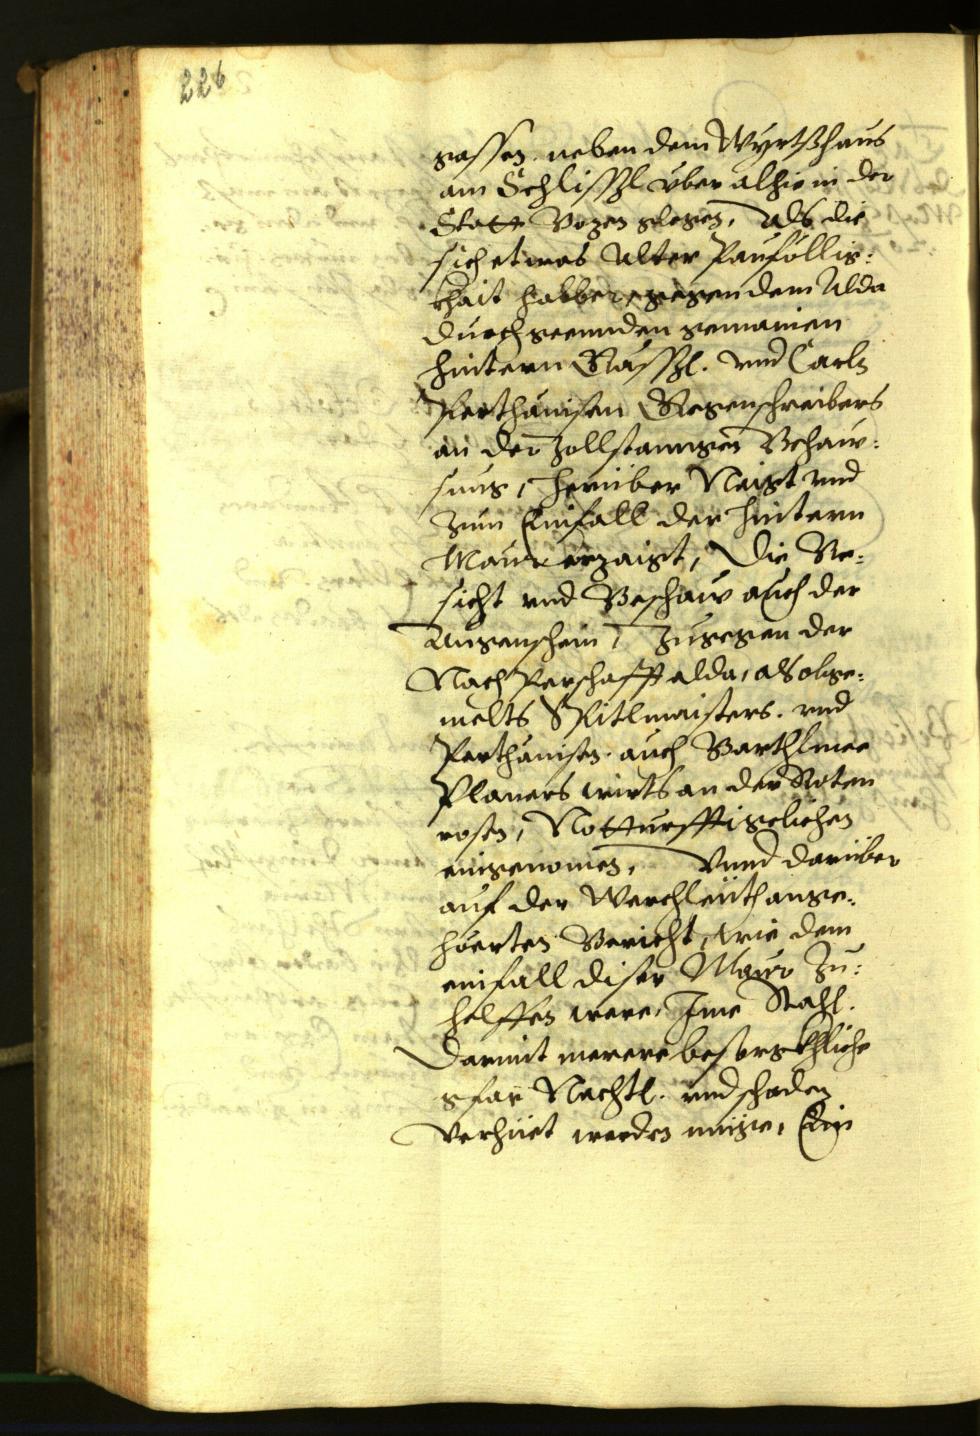 226
gassen, neben dem Wyrtßhaus
am Schlissl über alhie in der
Statt Bozen glegen, Als die
sich etwas Alter Pauföllig:
khait halber, gegen dem Alda
durchgeennden gemainen
hintern Gässl. vnd Carln
Perthänisen Gegenschreibers
an der Zollstanngen Behaus:
sung, herüber Naigt vnd
zum Einfall der hintern
Maur erzaigt, Die Be:
sicht vnd Beschaw auch der
Augenschein, Zugegen der
Nachperschafft alda, als obge:
melts Spitlmaisters, vnd
Perthänisen, auch Barthlmee
Planers wirts an der Roten
rosen, Notturfftigelichen
eingenomen, Vnnd darüber
auf der Werchleüth ange:
hörten Bericht, wie dem
einfall diser Maur zu:
helffen were, Ime Stahl.
Darmit merere besorgkhliche
gfar Nachtl. vnd schaden
verhüet werden müge, Ein